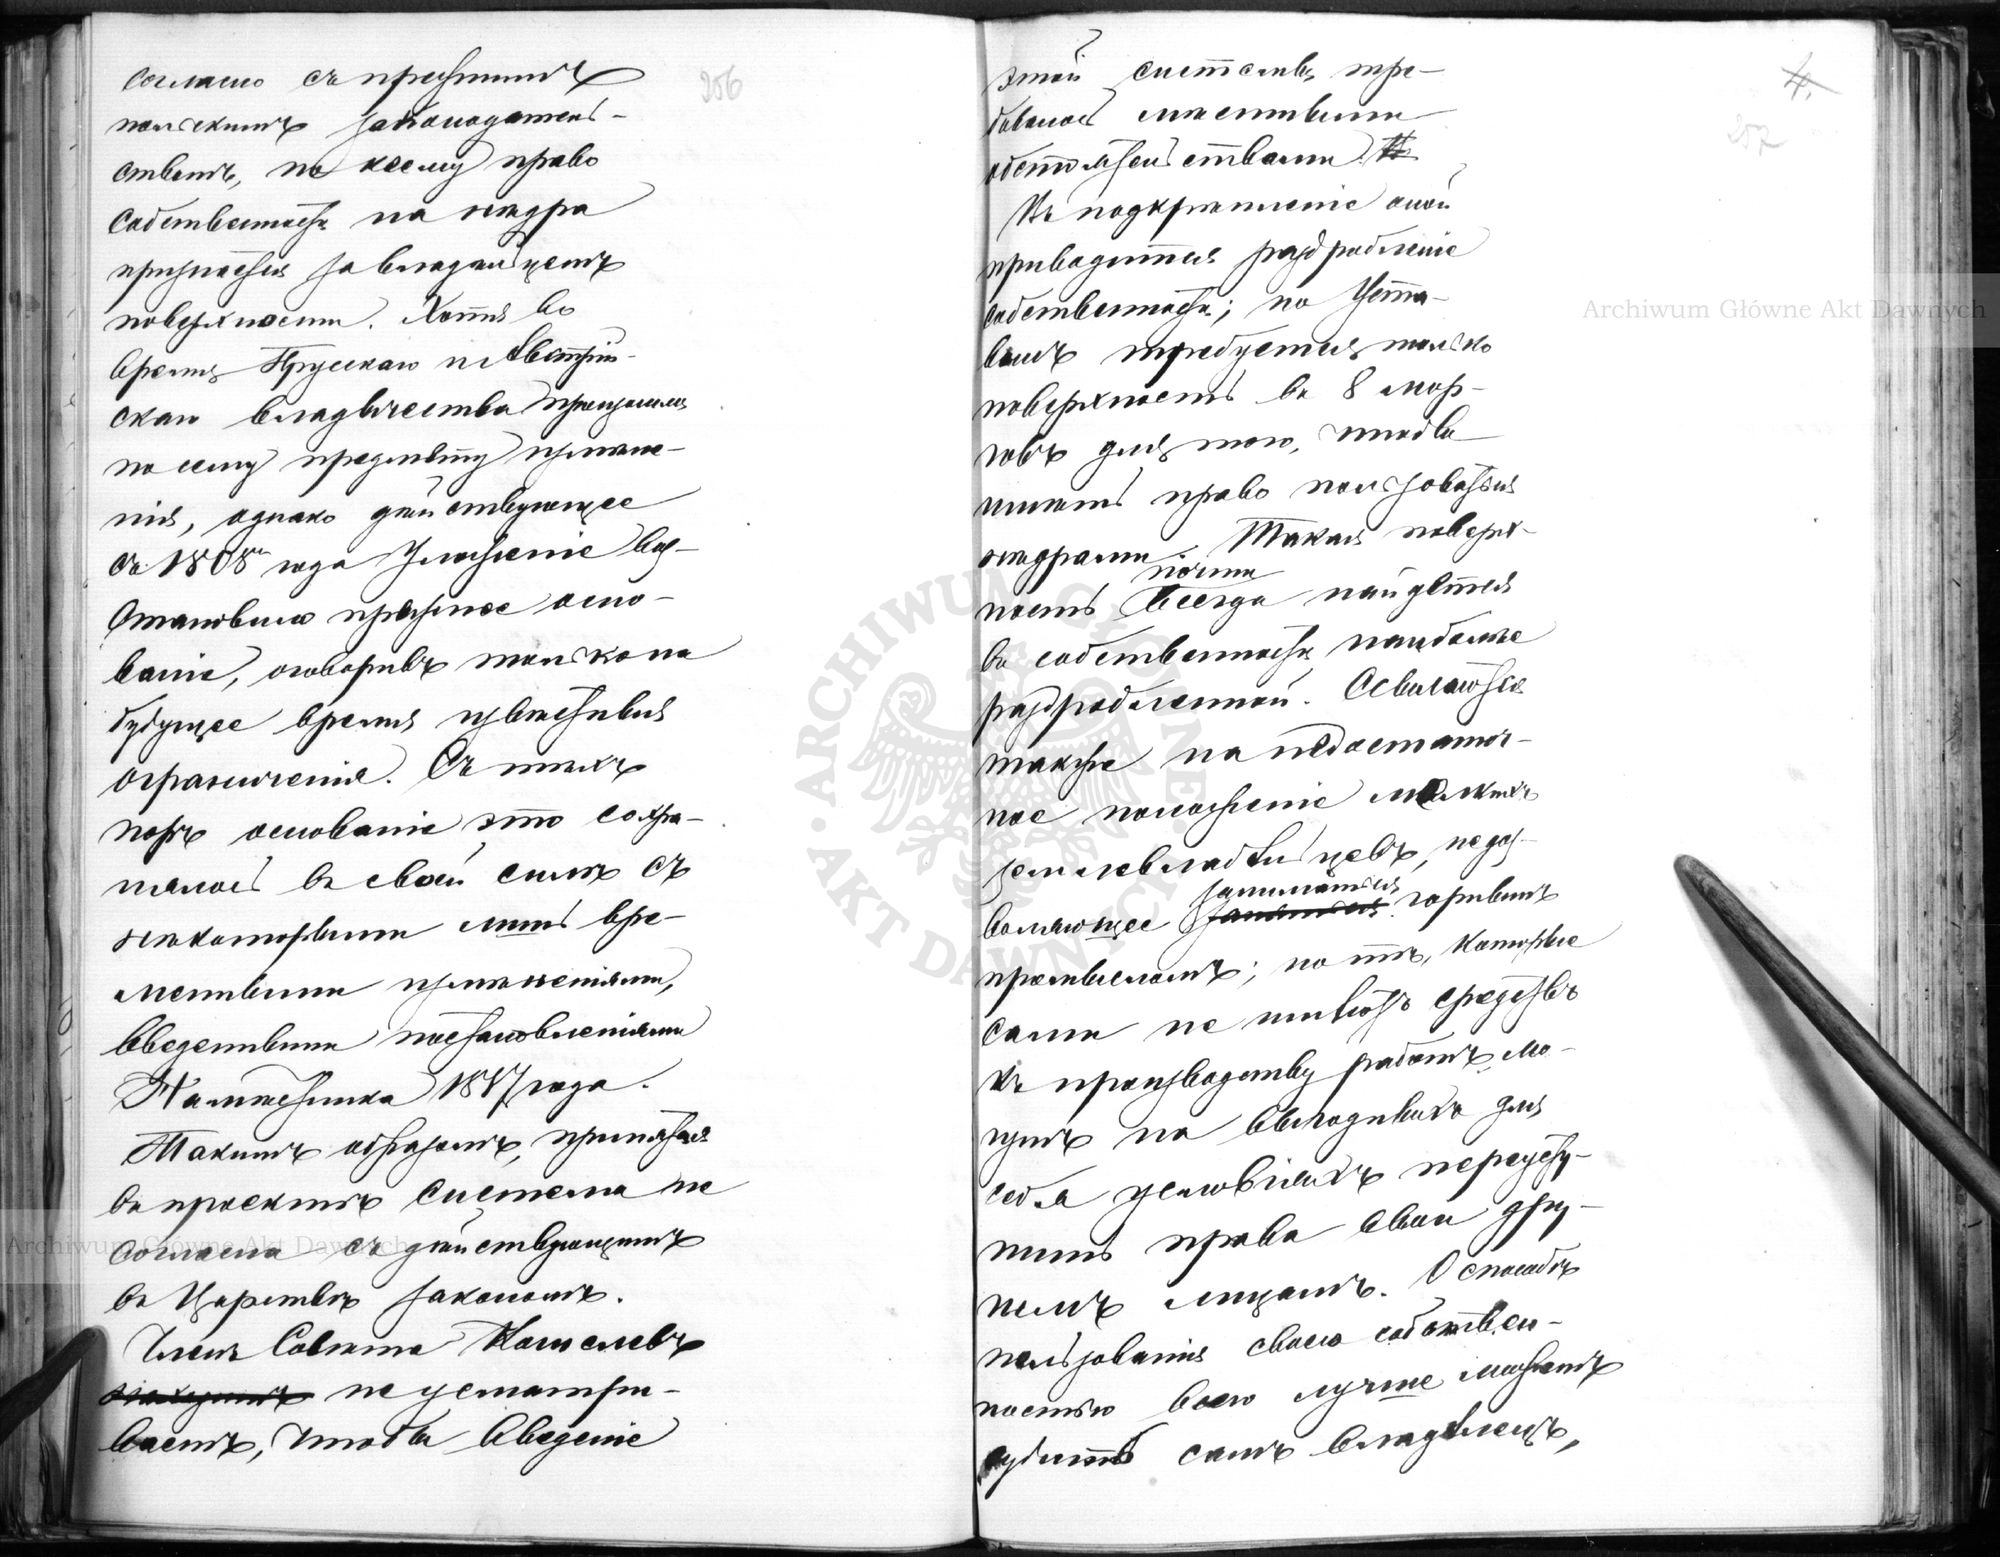 согласно съ прежнимъ
польскимъ законодатель-
ствомъ, по коему право
собственности на нѣдра
признается за владѣльцемъ
поверхности. Хотя во
время Прусскаго и Австрій-
скаго владычества произошли
по сему предмету измѣне-
нія, однако дѣйствующее
съ 1808го года Уложеніе воз-
становило прежнее осно-
ваніе, оговоривъ только на
будущее время извѣстныя
ограниченія. Съ тѣхъ
поръ основаніе это сохра-
нялось въ своей силѣ съ
нѣкоторыми лишь вре-
менными измѣненіями,
введенными постановленіями
Намѣстника 1817 года.
Такимъ образомъ, принятая
въ проектѣ система не
согласна съ дѣйствующимъ
въ Царствѣ закономъ.
Членъ Совѣта Кошелевъ
не усматри-
ваетъ, чтобы введеніе
256
этой системы тре-
бовалось мѣстными
обстоятельствами.
Въ подкрѣпленіе оной
приводится раздробленіе
собственности; но Уста-
вомъ требуется только
поверхность въ 8 мор-
говъ для того, чтобы
имѣть право пользоваться
нѣдрами. Такая поверх-
почти
ность всегда найдется
въ собственности наиболѣе
раздробленной. Ссылаются
также на недостаточ-
ное положеніе мелкихъ
землевладѣльцевъ, недоз-
заниматься
воляющее горнымъ
промысломъ; но тѣ, которые
сами не имѣютъ средствъ
къ производству работъ, мо-
гутъ на выгодныхъ для
себя условіяхъ переусту-
пить права свои дру-
гимъ лицамъ. О способѣ
пользованія своею собствен-
ностью всего лучше можетъ
судить самъ владѣлецъ,
4.
257
Archiwum Główne Akt Dawnych
Archiwum Główne Akt Dawnych
ARCHIWUM GŁÓWNE · AKT DAWNYCH ·